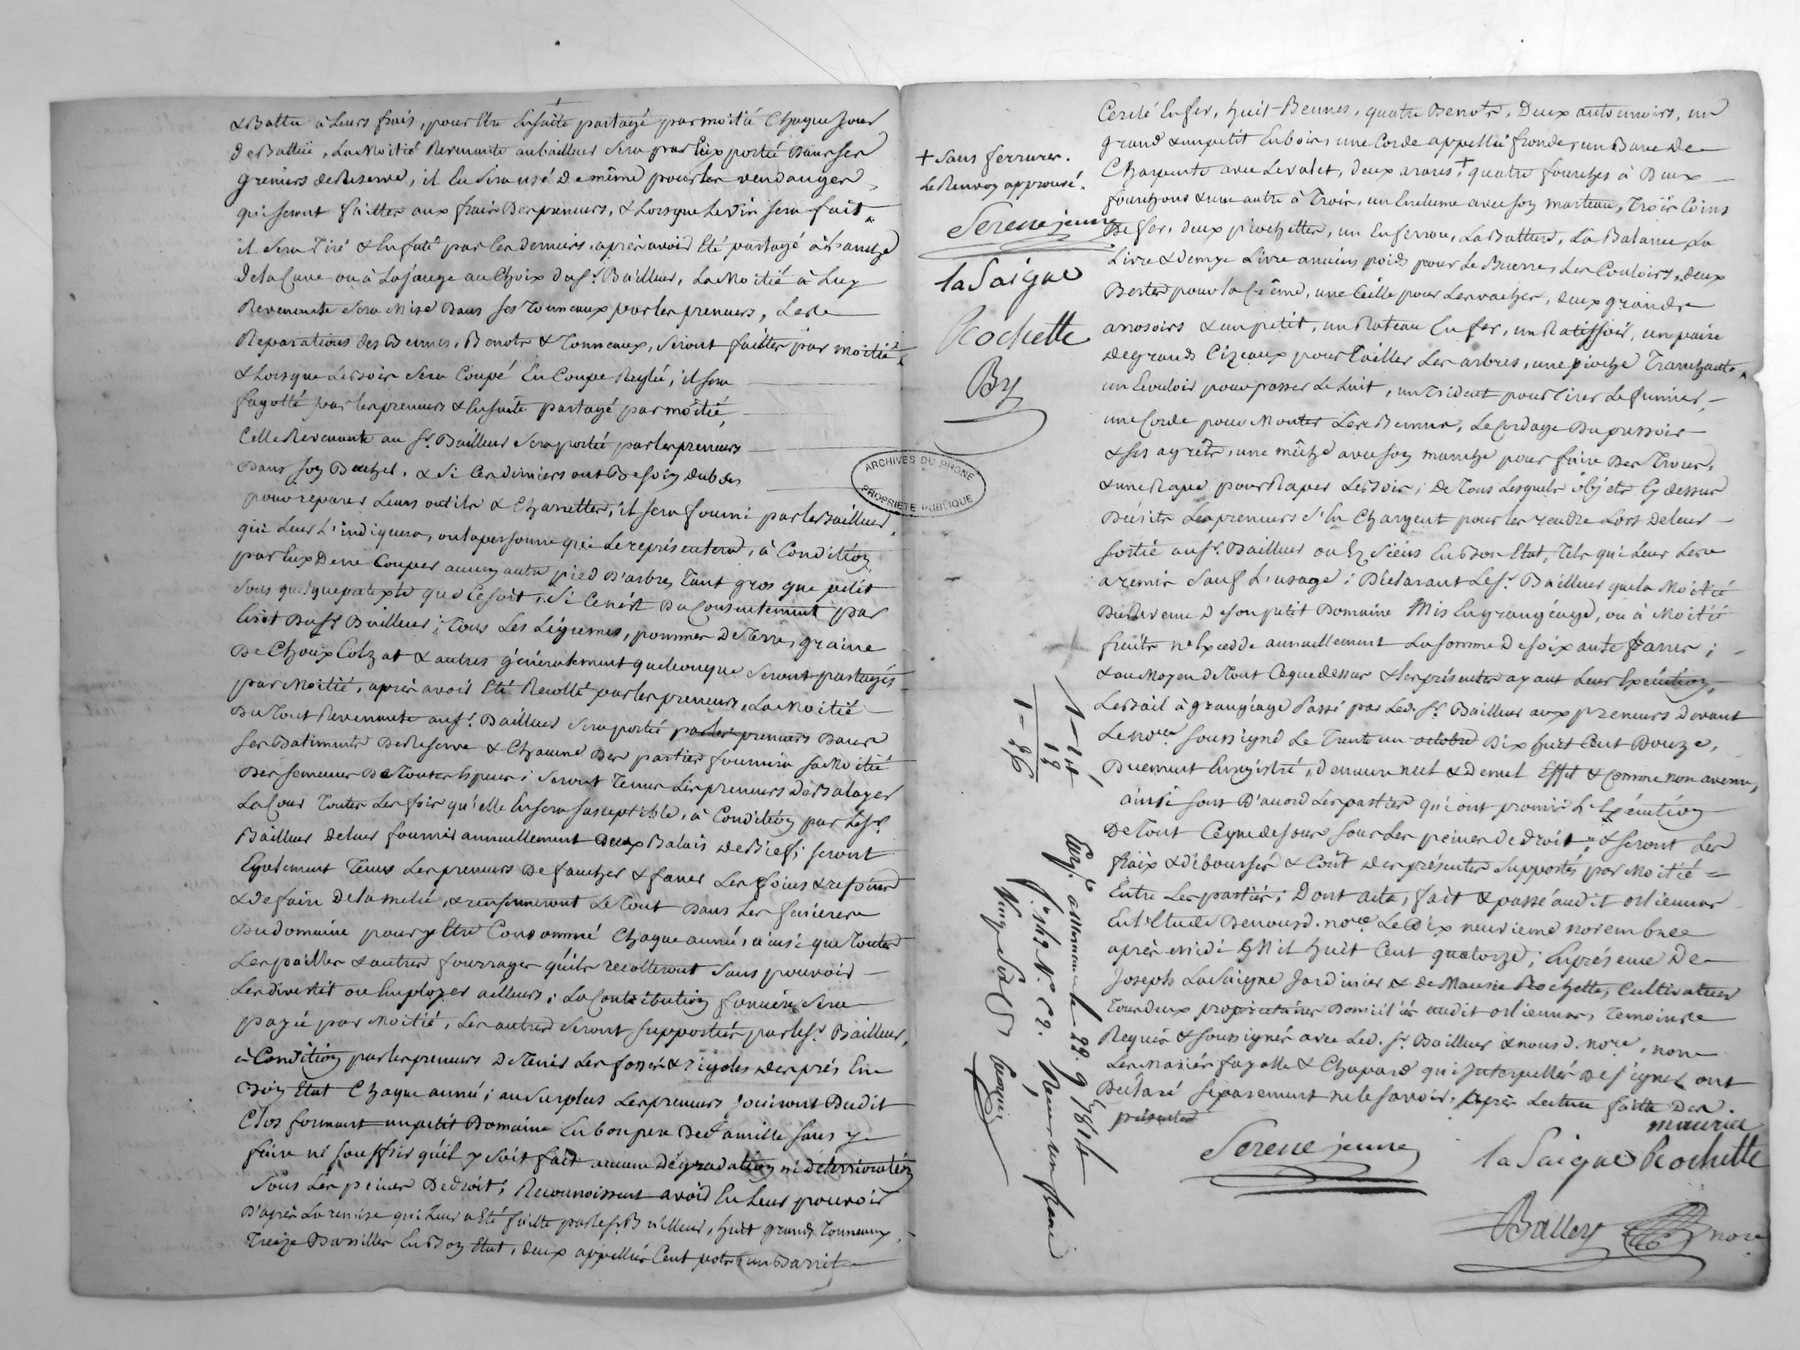 & Battu à Leurs frais, pour Etre Ensuite partagé par moitié Chaque Jour
de Battüe, La Moitié Revenante au bailleur Sera par Eux portée Dans Ses
greniers de Reserve, il En Sera usé De même pour les vendanges
qui seront faittes aux frais Des preneurs, & Lorsque Le vin sera fait
il Sera Tiré & Enfuté par Ces Derniers, après avoir Eté partagé à
De la Cuve ou à La jauge au Choix du Sr. Bailleur, La Moitié à Luy
Revenante Sera Mise Dans Ses Tonneaux par les preneurs, Les
Reparations des Bennes, Benots & Tonneaux, Seront faittes par moitié
& Lorsque Le Bois Sera Coupé En Coupe Reglée, il Sera
fagotté par les preneurs & Ensuite partagé par moitié,
Celle Revenante au Sr. Bailleur Sera portée par les preneurs
Dans Son Bucher. & Si Ces Derniers ont Besoin du bois
pour réparer Leurs outils & Charrettes, il sera fourni par le Bailleur
qui Leur L'indiquera, ou la personne qui Le représentera, à Condition
par Eux De ne Couper aucun autre pied D'arbre Tant gros que petit
Sous quelque pretexte que Ce soit, Si Ce n'est Du Consentement par
Ecrit Du Sr. Bailleur; Tous Les Légumes, pommes De Terre, graine
De Choux Colzat & autres généralement quelconque Seront partagés
par Moitié, après avoir Eté Recolté par les preneurs, La Moitié
Du Tout Revenante au Sr. Bailleur Sera porté par les preneurs Dans
Ses Batiments De Reserve & Chacune Des parties fournira Sa Moitié
Des semences De Toutes Espèces; Seront Tenus Les preneurs De Balayer
La Cour Toutes Les fois qu'elle En sera susceptible, à Condition par Le Sr.
Bailleur de Leur fournir annuellement Deux Balais ; Seront
Egalement Tenus Les preneurs De faucher & faner Les foins &
& de faire , & renfermeront Le Tout Dans Les fenieres
Du domaine pour y Etre Consommé Chaque année, ainsi que Toutes
Les pailles & autres fourrages qu'ils recolteront Sans pouvoir
Les divertir ou Employer ailleurs; La Contribution fonciere Sera
payée par Moitié, Les autres Seront supportées par le Sr. Bailleur,
à Condition par les preneurs De Tenir Les fossés & rigoles des prés En
Bon Etat Chaque année; au Surplus Les preneurs Jouiront Dudit
Clos formant un petit Domaine En bon pere De famille Sans y
faire ni souffrir qu'il y soit fait aucune Dégradation ni déterrioration
Sous Les peines De droit; Reconnoissent avoir En Leur pouvoir
D'après La remise qui Leur a Eté faitte par le Sr. Bailleur, huit grands Tonneaux,
Treize Bassilles En Bon Etat, deux appellées Cent pots & un Barril
+ Sans ferrures.
Le Renvoy approuvé.
Serene jeune
la Saigne
Rochette
By
ARCHIVES DU RHONE
PROPRIETE PUBLIQUE
Cerclé En fer, huit Bennes, quatre Benots, Deux , un
grand & un petit En bois, une Corde appellée fronde, un Banc De
Charpente avec Le valet, deux araires,+ quatre fourches à Deux
fourchons & une autre à Trois, un Enclume avec son marteau, Trois Coins
De fer, deux piochettes, un , La , La Balance, La
Livre & demye Livre anciens poids pour Le Beurre, Les Couloirs, deux
pour la Crême, une pour Les vaches, deux grands
arrosoirs & un petit, un Rateau En fer, un Ratissoir, un paire
de grands Cizeaux pour Tailler Les arbres, une pioche Tranchante,
un pour passer Le Lait, un Trident pour Tirer Le fumier,
une Corde pour Monter Les Bennes, Le Cordage Du pressoir
& ses agrêts, une mêche avec son manche pour faire Des Trous,
& une Rape pour Raper Le Bois; De Tous Lesquels objets Cy dessus
Décrits Les preneurs S'En Chargent pour les rendre Lors de Leur
sortie au Sr. Bailleur ou Ez Siens En Bon Etat, Tels qu'il Leur Sera
remis Sauf L'usage; Déclarant Le Sr. Bailleur que la Moitié
Du Revenu De son petit Domaine Mis En grangéage, ou à Moitié
fruits n'Excedde annuellement La somme De soixante francs;
& au Moyen de Tout Ce que dessus & Les présentes ayant Leur Execution,
Le Bail à grangéage Passé par Led. Sr. Bailleur aux preneurs Devant
Le nore. soussigné Le Trente un octobre Dix huit Cent Douze,
Duement Enregistré, demeure nul & De nul Effet & Comme non avenu,
ainsi sont D'accord Les parties qui ont promis L'Exécution
De Tout Ce que dessus Sous Les peines de droit; & Seront Les
fraix & déboursés & Coût des présentes Supportés par Moitié
Entre Les parties; Dont acte, fait & passé audit orlienas
En l'Etude De nousd. nore. Le Dix neuvieme novembre
après midi Mil huit Cent quatorze; En présence De
Joseph La Saigne Jardinier & de Maurice Rochette, Cultivateur
Tous deux propriétaires Domiciliés audit orlienas, Temoins
Requis & soussignés avec Led. Sr. Bailleur & nous d. nore., non
Les Mariés fayolle & Chapard qui Interpellés De signer ont
Declaré séparement ne le savoir, après Lecture faitte Des
présentes
Serene jeune
maurice
la Saigne Rochette
Balley nore
1 – 14
12
1 – 26